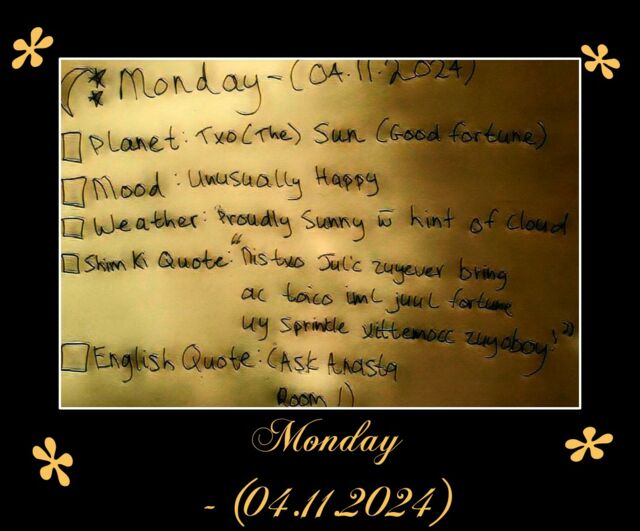 Monday - (04.11.2024)
Planet: Txo (The) Sun (Good fortune)
Mood: Unusually Happy
Weather: Proudly Sunny w̄ hint of cloud
Shim Ki Quote: "Distxo Julic zuyever bring
ac toico iml juul fortune
uy sprinkle xittemocc zuyoboy!"
English Quote: (Ask Anasta
Room 1)
Monday
- (04.11.2024)